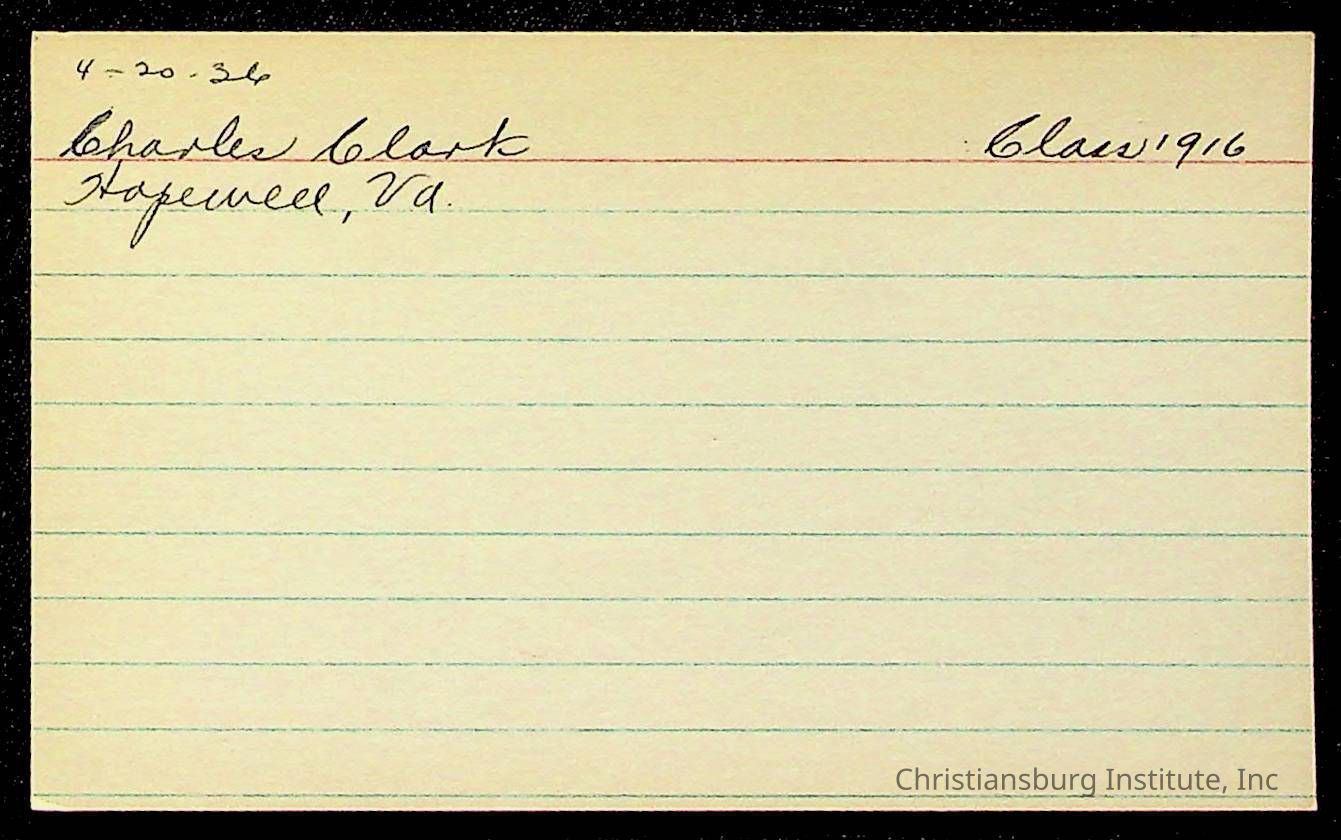 4-20-36
Charles Clark Class 1916
Hopewell, Va.
Christiansburg Institute, Inc